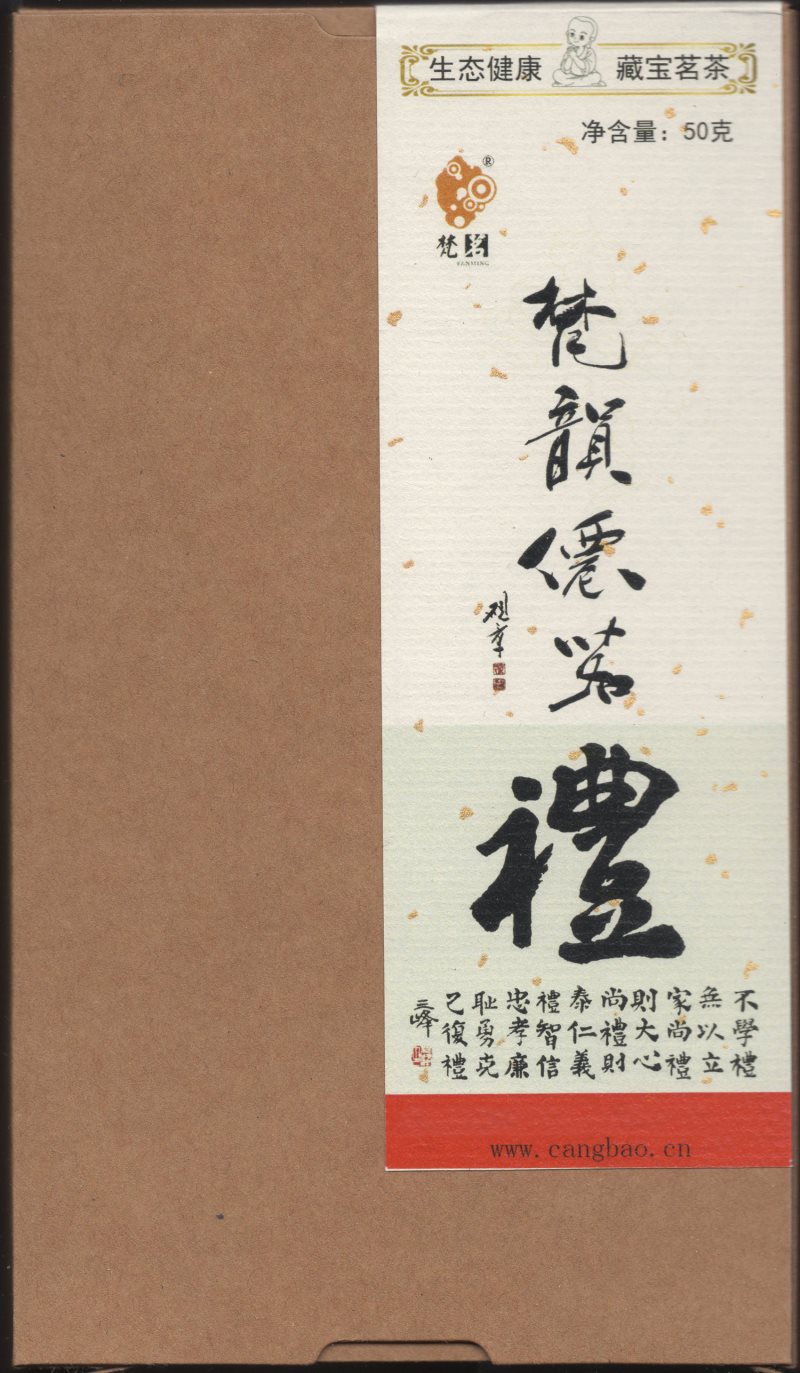 生态健康 藏宝茗茶
净含量：50克
®
梵茗
FANMING
梵韻僊茗
禮
不學禮
無以立
家尚禮
則大心
尚禮則
泰仁義
禮智信
忠孝廉
耻勇克
己復禮
三峰
www.cangbao.cn